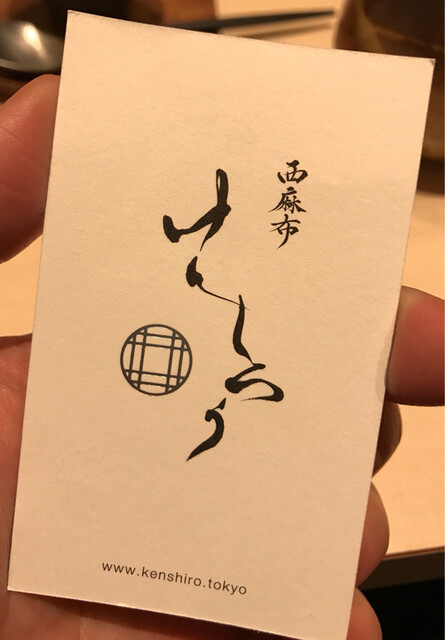 西麻布
けんしろう
www.kenshiro.tokyo